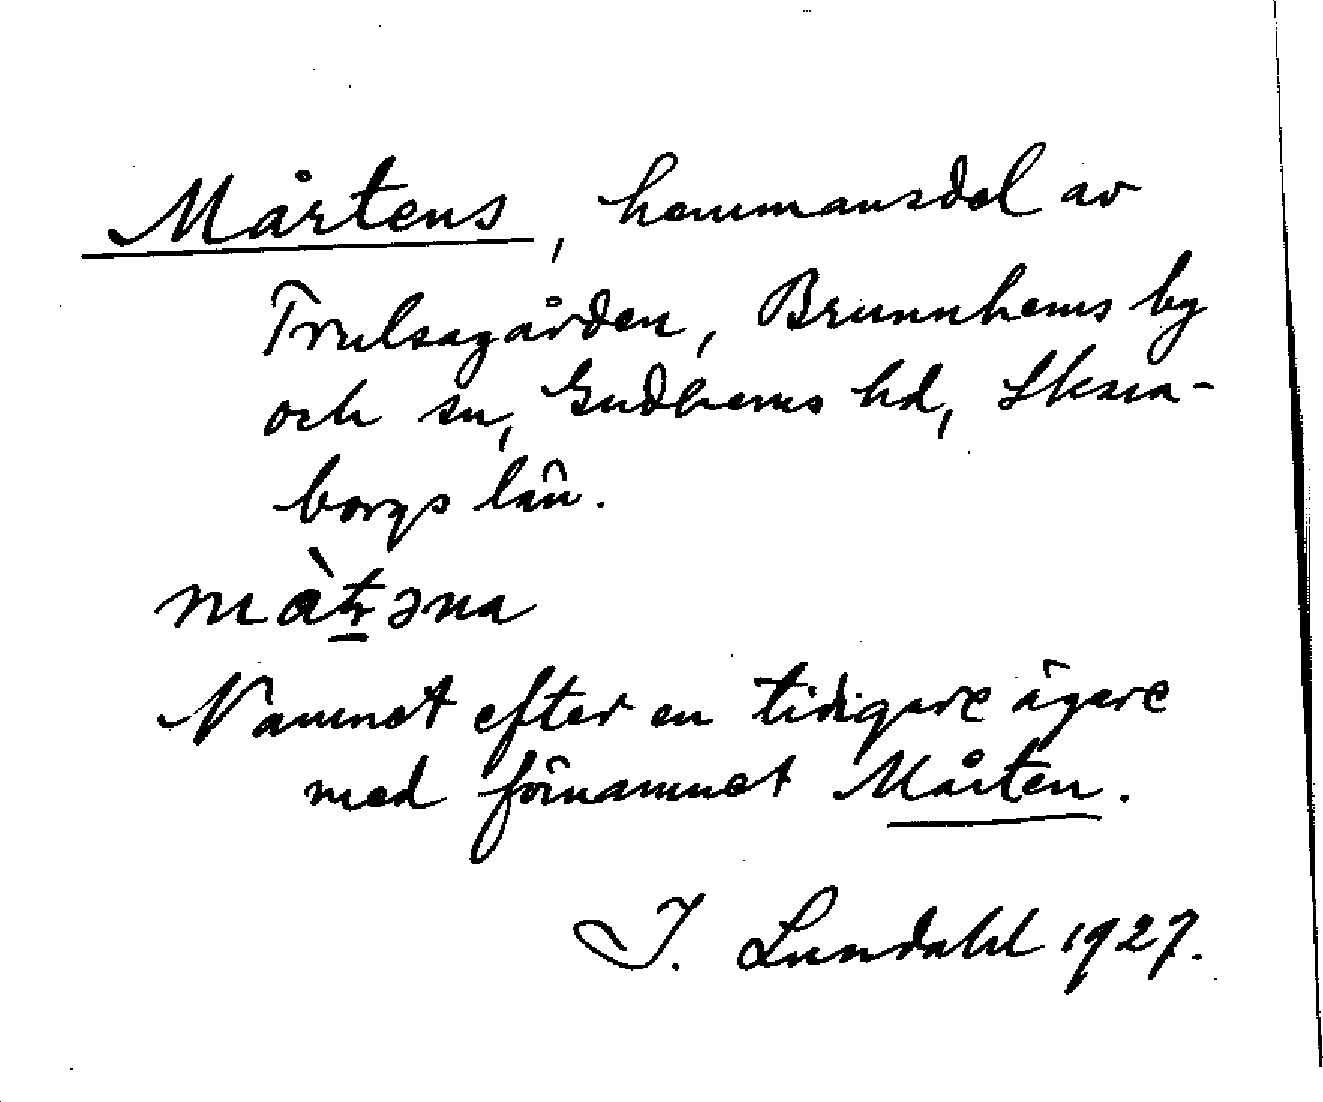 Mårtens, hemmansdel av
Trulsagården, Brunnhems by
och sn, Gudhems hd, Skara-
borgs län.
màt̠r̠əna
Namnet efter en tidigare ägare
med förnamnet Mårten.
I. Lundahl 1927.